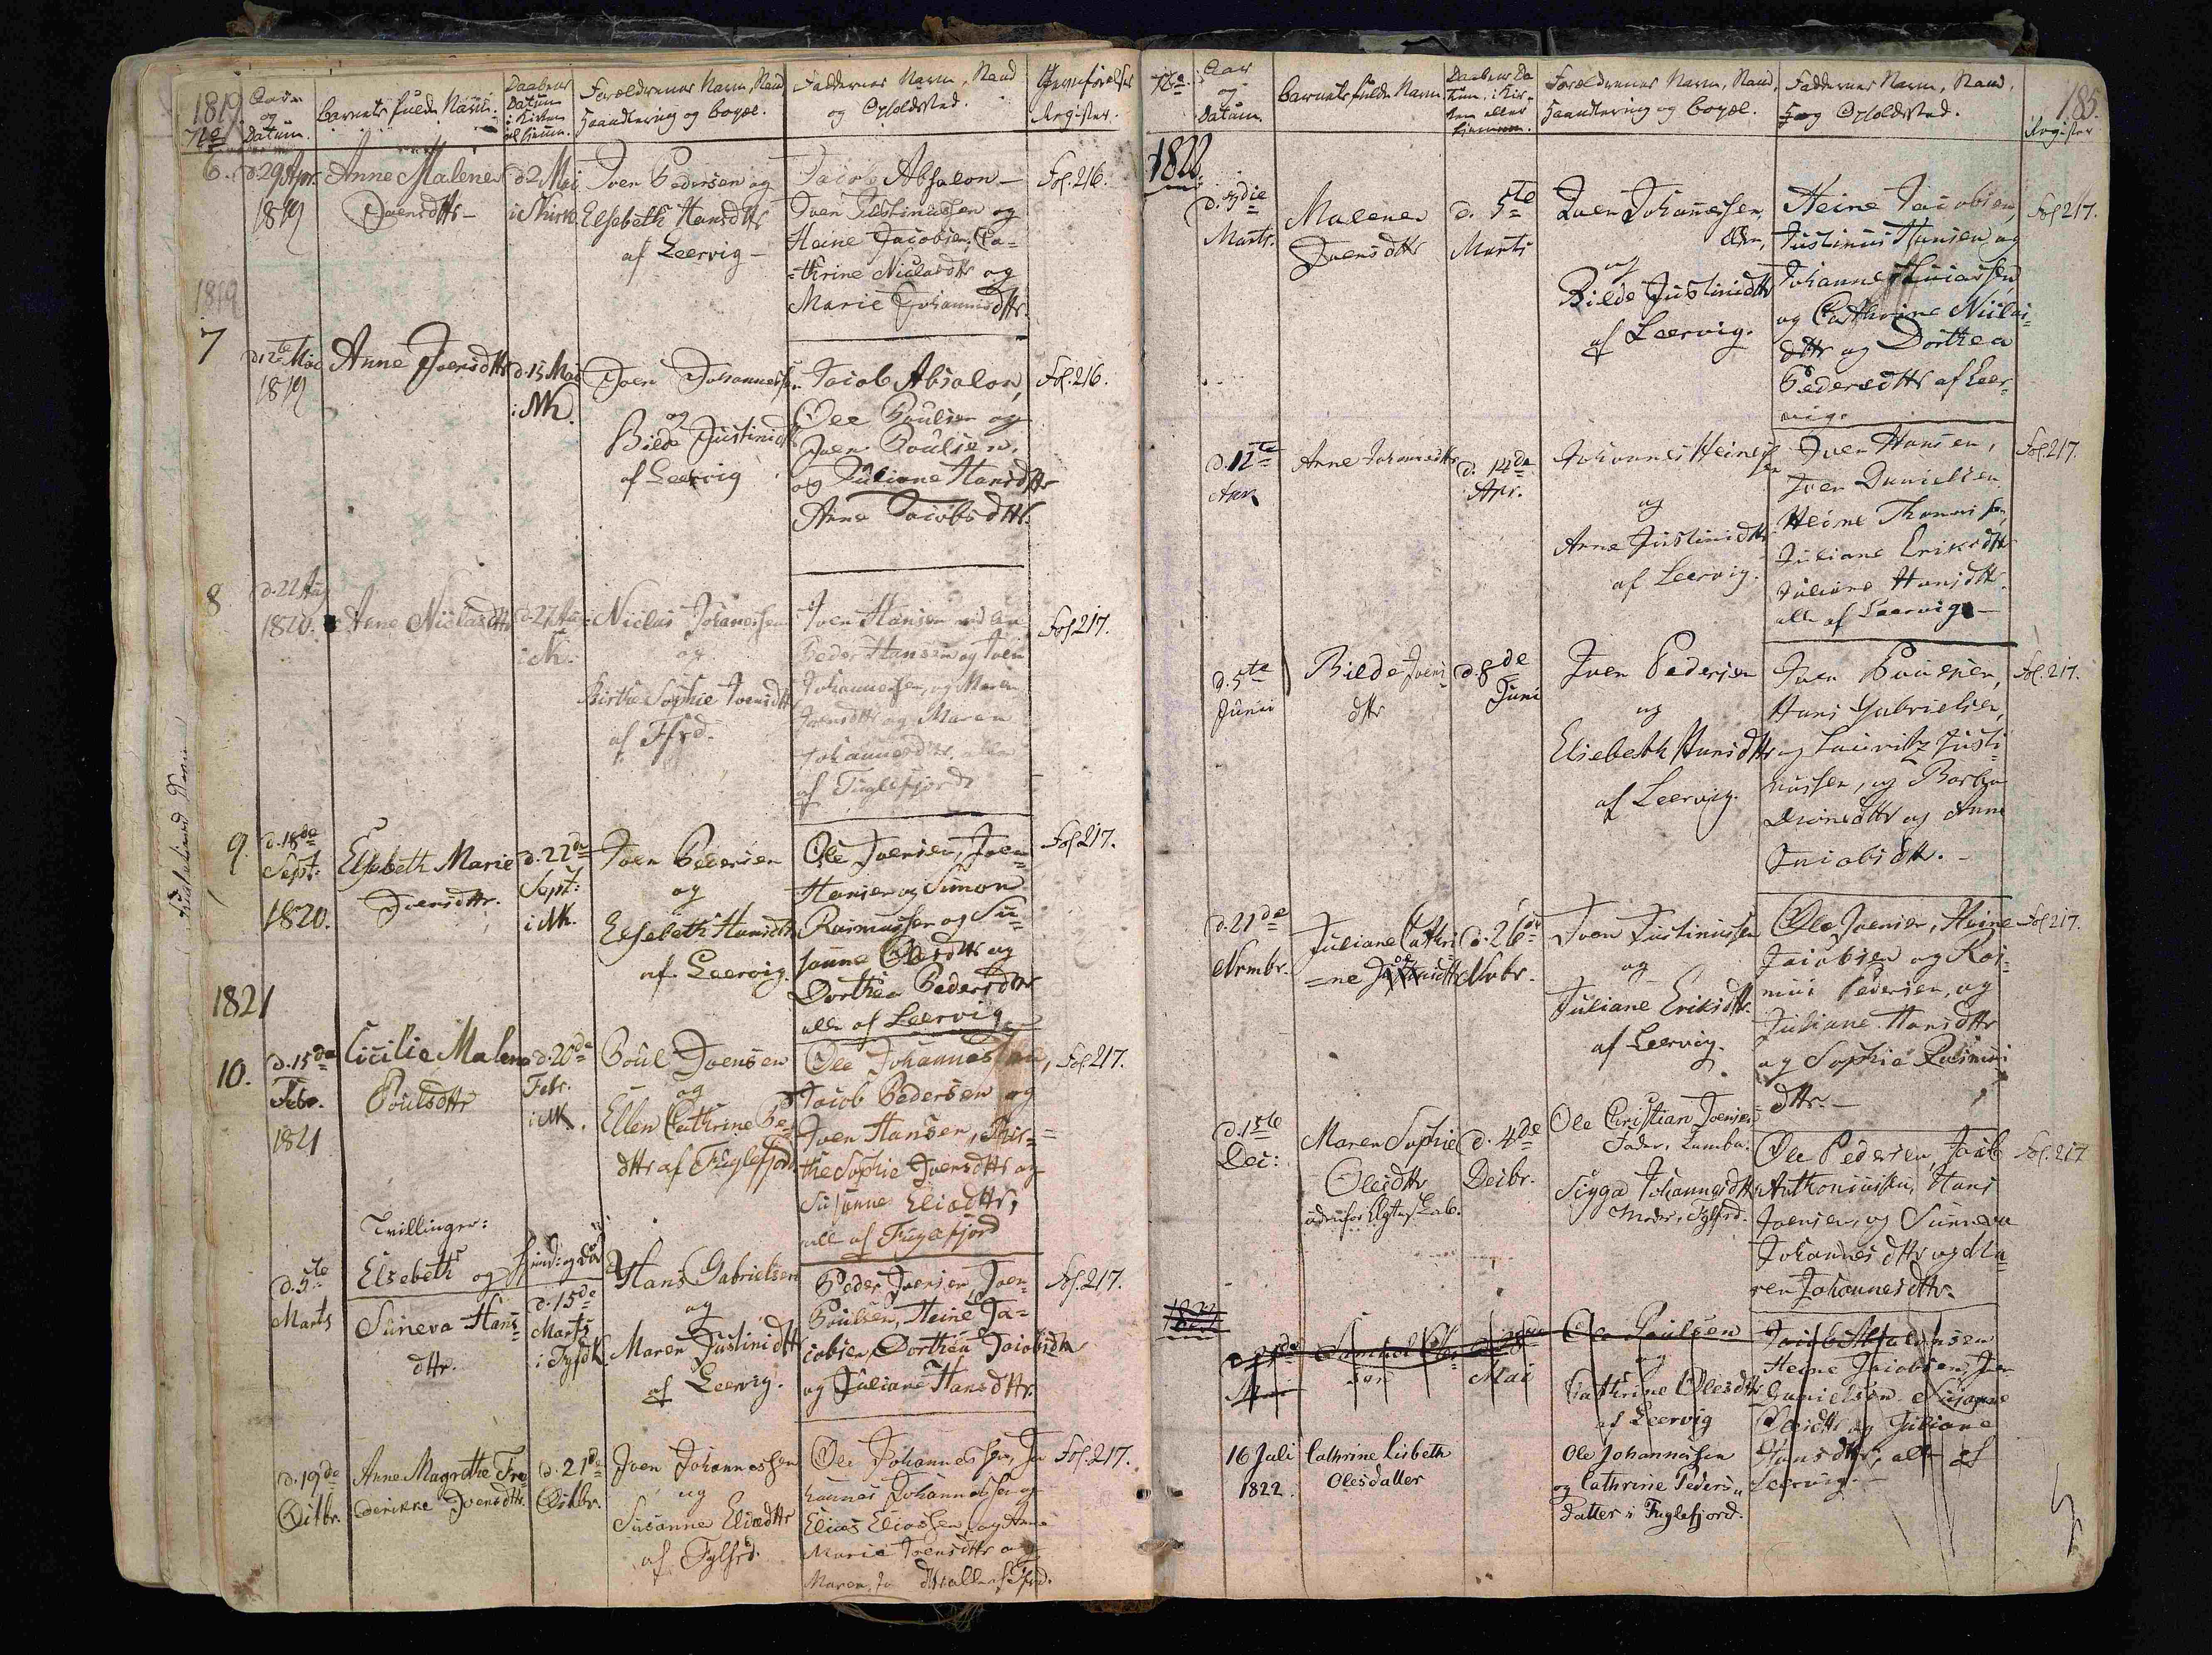 1819
No
Aar
og
Datum.
Barnets fulde Navn.
Daabens
Datum
i Kirken
el hjemme.
Forældrenes Navn, Stand
Haandtering og Bopæl.
Faddernes Navn, Stand
og Opholdsted.
Register.
6.
d. 29 Apr.
1819
Anne Malene
Joensdttr
d 2 Mai
i Kirk
Joen Pedersen og
Elsebeth Hansdttr
af Leervig
Jacob Absalon
Joen Justinussen og
Heine Jacobsen, Ca-
thrine Niclasdttr og
Marie Johannisdttr.
Fol. 216.
1819
7
d. 12te Mai
1819
Anne Joensdttr
d. 15 Mai
i NK.
Joen Johannessen
og
Bilde Justinidttr
af Leervig
Jacob Absalon,
Ole Poulsen og
Joen Poulsen,
og Juliane Hansdttr
Anne Jacobsdttr.
Fol. 216.
8
d. 22 Aug
1820.
Anne Niclasdttr
d 27 Aug
i NK.
Niclas Johannessen
og
Birthe Sophie Joensdttr
af Ffrd.
Joen Hansen
Peder Hansen og Joen
Johannessen, og Maren
Joensdttr og Maren
Johannesdttr. alle
af Fuglefjord
Fol 217.
9.
d. 18de
Sept:
1820.
Elsebeth Marie
Joensdttr.
d. 22de
Sept:
i NK.
Joen Pedersen
og
Elsebeth Hansdttr
af Leervig.
Ole Joensen, Joen
Hansen og Simon
Rasmussen og Su-
sanne Olesdttr og
Dorthea Pedersdttr
alle af Leervig
Fol 217.
1821
10.
d. 15de
Febr.
1821
Cicilie Malene
Poulsdttr
d. 20de
Febr.
i NK.
Poul Joensen
og
Ellen Cathrine Pe-
dttr af Fuglefjord
Ole Johannessen,
Jacob Pedersen og
Joen Hansen, Bir-
the Sophie Joensdttr og
Susanne Eliædttr,
alle af Fuglefjord
Fol. 217.
Tvillinger:
d. 5te
Marts
Elsebeth og
Suneva Hans-
dttr.
d. 15de
Marts
i FgfdK.
Hans Gabrielsen
og
Maren Justinidttr
af Leervig.
Peder Joensen, Joen
Poulsen, Heine Ja-
cobsen, Dorthea Jacobsdttr
og Juliane Hansdttr.
Fol. 217.
d. 19de
Octbr.
Anne Magrethe Fre-
derikke Joensdttr.
d. 21de
Octbr.
Joen Johannessen
og
Susanne Eliædttr
af Fglfrd.
Ole Johannessen, Jo
hannes Johannessen og
Elias Eliassen, og Anne
Marie Joensdttr og
Maren dttr alle af Ffrd.
Fol. 217.
No
Aar
og
Datum
Barnets fulde Navn
Daabens Da
tum, i Kir-
ken eller
hjemme.
Forældrenes Navn, Stand,
Haandtering og Bopæl.
Faddernes Navn, Stand,
og Opholdsted.
185.
Register
1822.
d. 3die
Marts.
Malene
Joensdttr
d. 5te
Marts
Joen Johannessen,
og
Bilde Justinidttr
af Leervig.
Heine Jacobsen,
Justinus Hansen, og
Johannes
og Cathrine Niclas-
dttr og Dorthea
Pedersdttr af Leer-
vig.
Fol 217.
d. 12te
Apr.
Anne Johannesdttr
d. 14de
Apr.
Johannes Heinessen
og
Anne Justinidttr
af Leervig.
Joen Hansen,
Joen Danielsen
Heine Thomassen,
Juliane Eriksdttr
Juliane Hansdttr.
alle af Leervig
Fol. 217.
d. 5te
Junii
Bilde Joens-
dttr
d. 8de
Juni
Joen Pedersen
og
Elsebeth Hansdttr
af Leervig.
Joen Poulsen,
Hans Gabrielsen,
og Lauritz Justi-
nussen, og Barbra
dttr og Anne
Jacobsdtr.
Fol. 217.
d. 21de
Novmbr.
Juliane Cathri
=ne
d. 26de
Novbr.
Joen Justinussen
og
Juliane Eriksdttr.
af Leervig.
Ole Joensen, Heine
Jacobsen og Ras-
mus Pedersen, og
Juliane Hansdttr
og Sophie Rasmus
dttr.
Fol 217.
d. 1ste
Dec:
Maren Sophie
Olesdttr
udenfor Ægtesk.
d. 4de
Decbr.
Ole Christian Joensen
Fader, Lamba.
Sigga Johannesdttr
Moder, Fglfrd.
Ole Pedersen, Jacob
Anthoniussen, Hans
Joensen, og Sunneva
Johannesdttr og Ma-
ren Johannesdttr.
Fol. 217
Mai
Samuel Ole-
sen
Mai
Ole Poulsen
og
Cathrine Olesdttr
af Leervig
Jacob Absalonsen
Heine Jacobsen, Joen
Danielsen, Susanne
dttr og Juliane
Hansdttr, alle af
Leervig.
16 Juli
1822.
Cathrine Lisbeth
Olesdatter
Ole Johannessen
og Cathrine Peders-
datter i Fuglefjord.